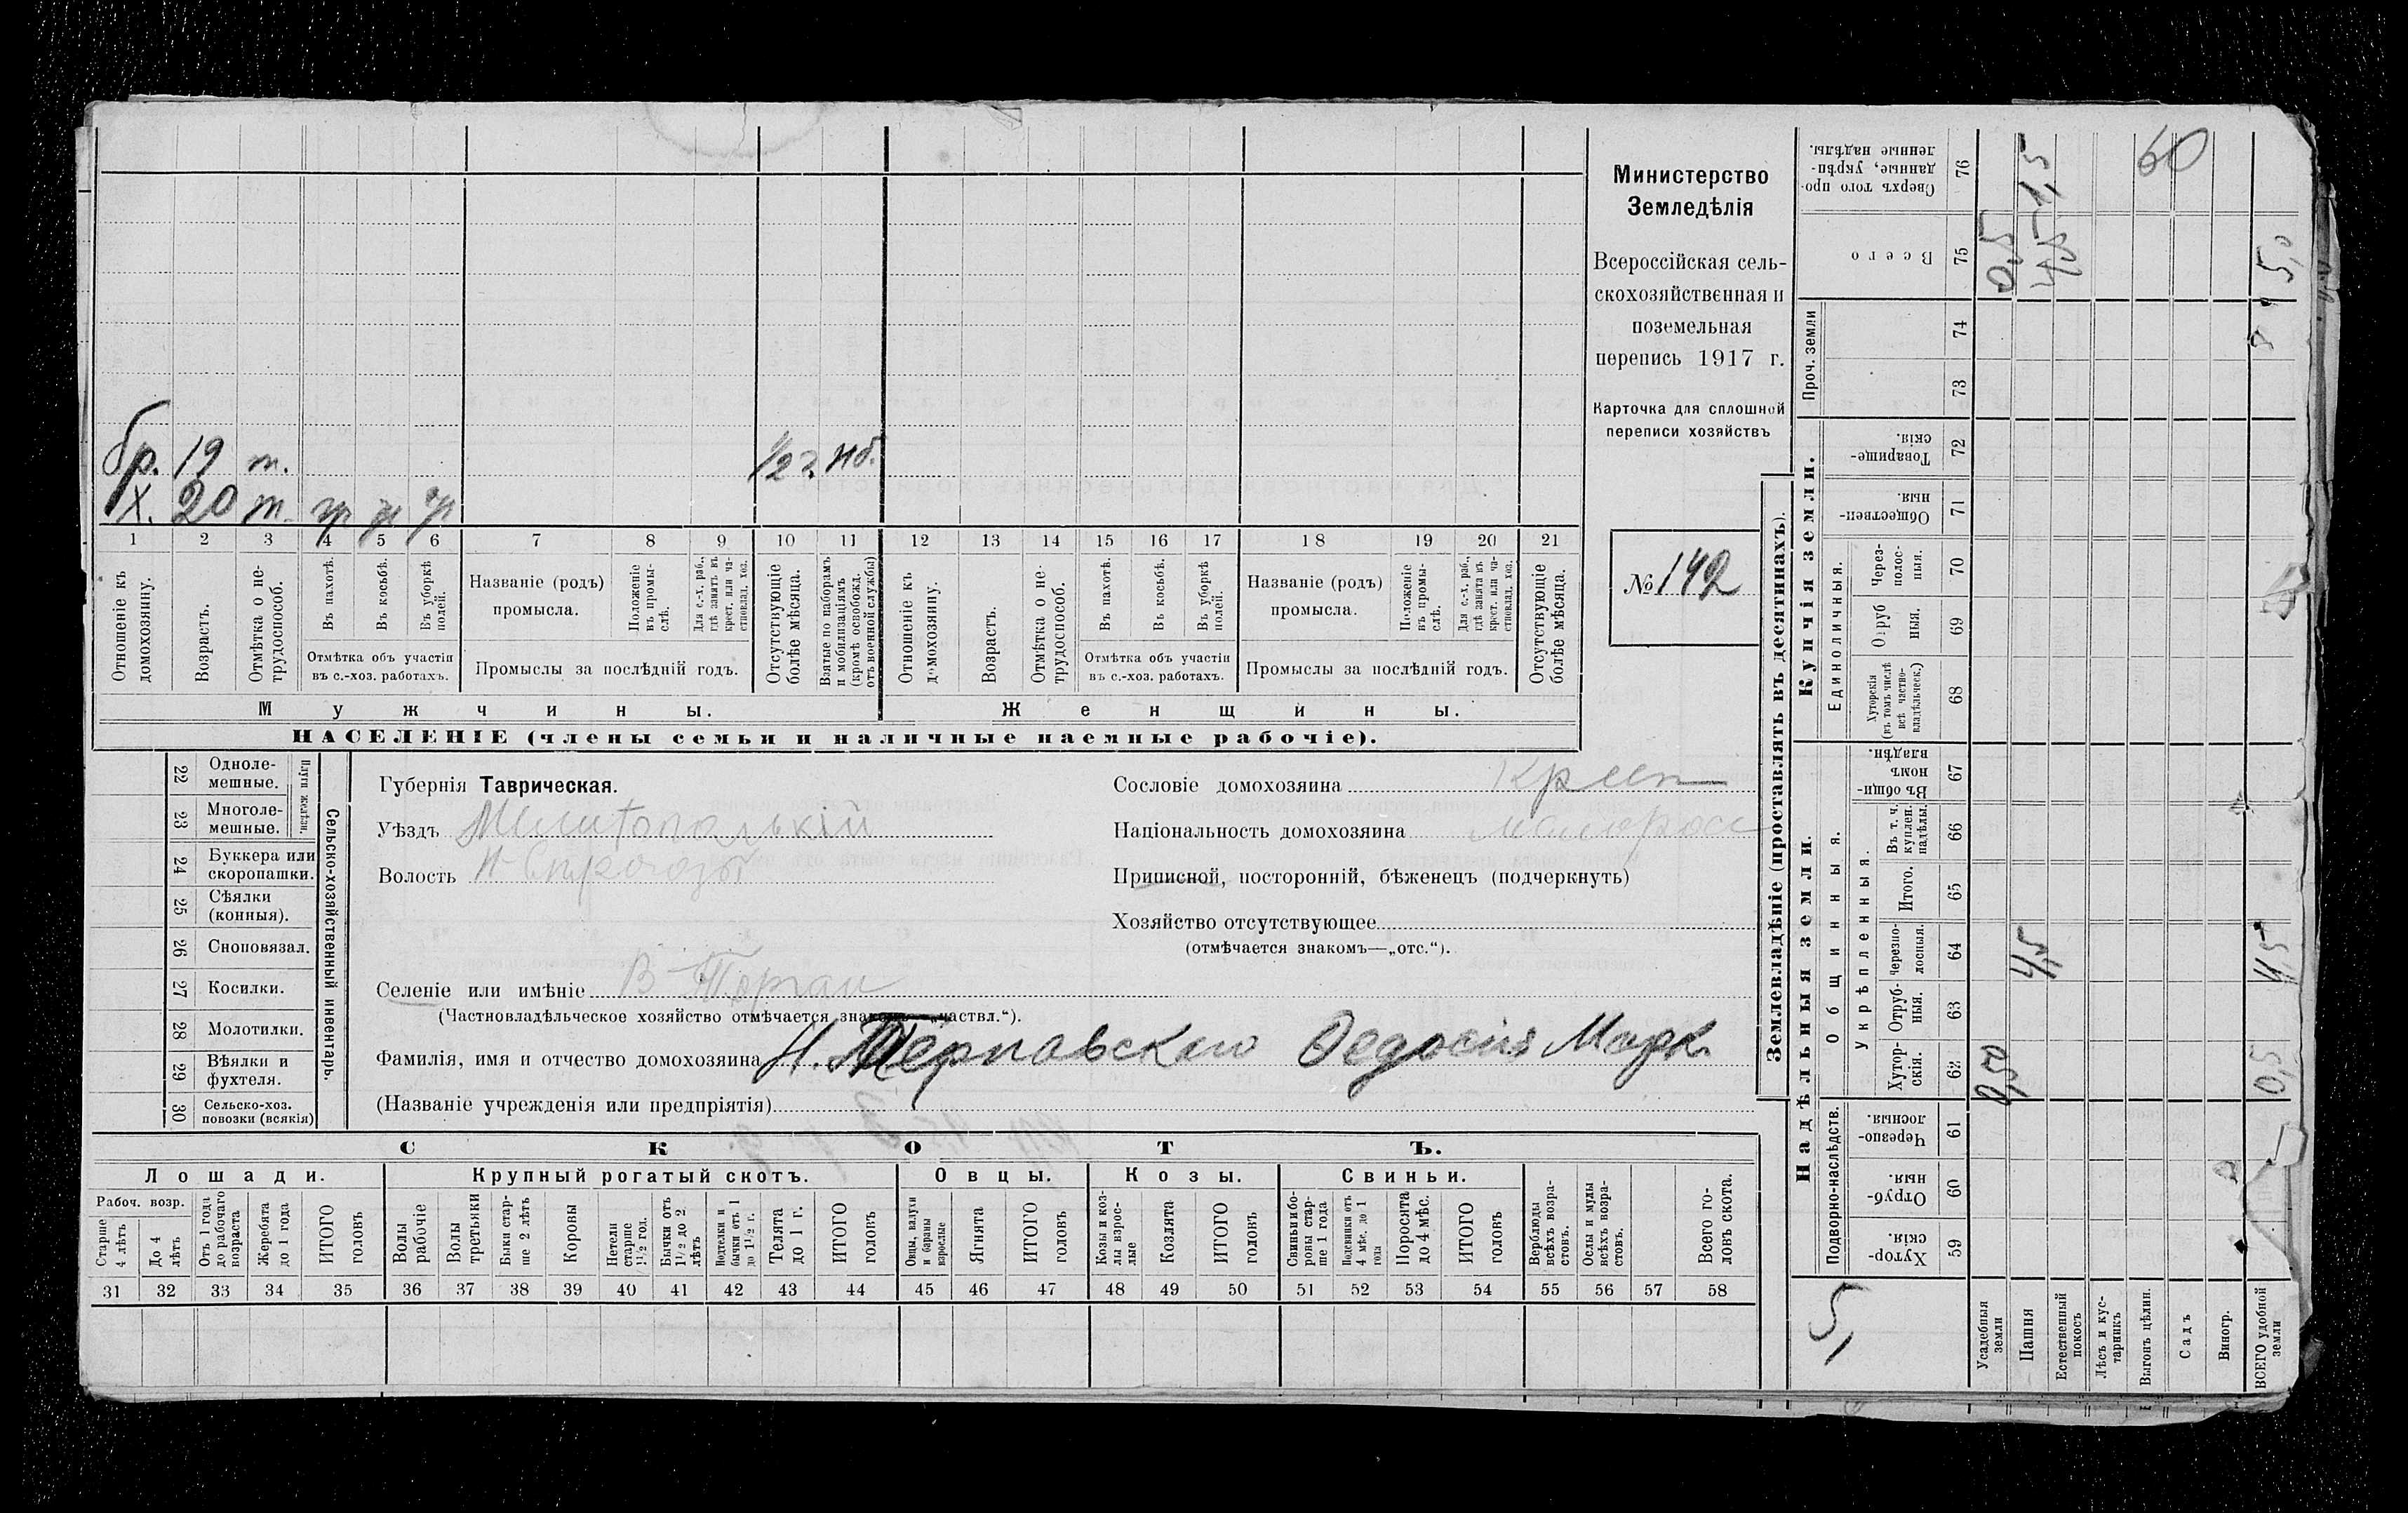 бр. 19 т. 1/2 г. нб.
Х. 20 т. гр гр гр
1 2 3 4 5 6 7 8 9 10 11 12 13 14 15 16 17 18 19 20 21
Отношеніе къ домохозяину.
Возрастъ.
Отмѣтка о нетрудоспособ.
Въ пахотѣ.
Въ косьбѣ.
Въ уборкѣ полей.
Отмѣтка объ участіи
въ с.-хоз. работахъ.
Названіе (родъ)
промысла.
Положеніе въ промыслѣ.
Для с.-х. раб., гдѣ занятъ въ крест. или частновлад. хоз.
Промыслы за послѣдній годъ.
Отсутствующіе болѣе мѣсяца.
Взятые по наборамъ и мобилизаціямъ (кромѣ освобожд. отъ военной службы)
Отношеніе къ домохозяину.
Возрастъ.
Отмѣтка о нетрудоспособ.
Въ пахотѣ.
Въ косьбѣ.
Въ уборкѣ полей.
Отмѣтка объ участіи
въ с.-хоз. работахъ.
Названіе (родъ)
промысла.
Положеніе въ промыслѣ.
Для с.-х. раб., гдѣ занята въ крест. или частновлад. хоз.
Промыслы за послѣдній годъ.
Отсутствующіе болѣе мѣсяца.
Мужчины. Женщины.
НАСЕЛЕНІЕ (члены семьи и наличные наемные рабочіе).
Министерство
Земледѣлія
Всероссійская сель-
скохозяйственная и
поземельная
перепись 1917 г.
Карточка для сплошной
переписи хозяйствъ
№ 142
22 Одноле-
мешные.
23 Многоле-
мешные.
Плуги желѣзн.
24 Буккера или
скоропашки.
25 Сѣялки
(конныя).
26 Сноповязал.
27 Косилки.
28 Молотилки.
29 Вѣялки и
фухтеля.
30 Сельско-хоз.
повозки (всякія)
Сельско-хозяйственный инвентарь.
Губернія Таврическая.
Уѣздъ Мелитопольскій
Волость Н-Сѣрогозы
Селеніе или имѣніе В-Торгаи
(Частновладѣльческое хозяйство отмѣчается знакомъ—„частвл.“).
Фамилія, имя и отчество домохозяина Н. Терновскаго Федосія Марк.
(Названіе учрежденія или предпріятія)
Сословіе домохозяина Крест
Національность домохозяина малорос
Приписной, посторонній, бѣженецъ (подчеркнуть)
Хозяйство отсутствующее
(отмѣчается знакомъ—„отс.“).
СКОТЪ.
Лошади. Крупный рогатый скотъ. Овцы. Козы. Свиньи.
Рабоч. возр.
Старше 4 лѣтъ
До 4 лѣтъ
Отъ 1 года до рабочаго возраста
Жеребята до 1 года
ИТОГО головъ
Волы рабочіе
Волы третьяки
Быки старше 2 лѣтъ
Коровы
Нетели старше 1 1/2 год.
Бычки отъ 1 1/2 до 2 лѣтъ
Подтелки и бычки отъ 1 до 1 1/2 г.
Телята до 1 г.
ИТОГО головъ
Овцы, валухи и бараны взрослые
Ягнята
ИТОГО головъ
Козы и козлы взрослые
Козлята
ИТОГО головъ
Свиньи и боровы старше 1 года
Подсвинки отъ 4 мѣс. до 1 года
Поросята до 4 мѣс.
ИТОГО головъ
Верблюды всѣхъ возрастовъ.
Ослы и мулы всѣхъ возрастовъ.
Всего головъ скота.
31 32 33 34 35 36 37 38 39 40 41 42 43 44 45 46 47 48 49 50 51 52 53 54 55 56 57 58
Землевладѣніе (проставлять въ десятинахъ).
Надѣльныя земли. Купчія земли. Проч. земли
Подворно-наслѣдств. Общинныя. Укрѣпленныя. Единоличныя.
Хуторскія. 59
Отрубныя. 60
Черезполосныя. 61
Хуторскія. 62
Отрубныя. 63
Черезполосныя. 64
Итого. 65
Въ т. ч. куплен. надѣлы. 66
Въ общинномъ владѣн. 67
Хуторскія (въ томъ числѣ всѣ частновладѣльческ.) 68
Отрубныя. 69
Черезполосныя. 70
Общественныя. 71
Товарищескія. 72
73
74
Всего 75
Сверхъ того проданные, укрѣпленные надѣлы. 76
5,
Усадебныя земли 0,50 0,5
Пашня 4,5 4,5 1,5
Естественный покосъ
Лѣсъ и кустарникъ
Выгонъ цѣлин. 60
Садъ
Виногр.
ВСЕГО удобной земли 0,5 4,5 5,0